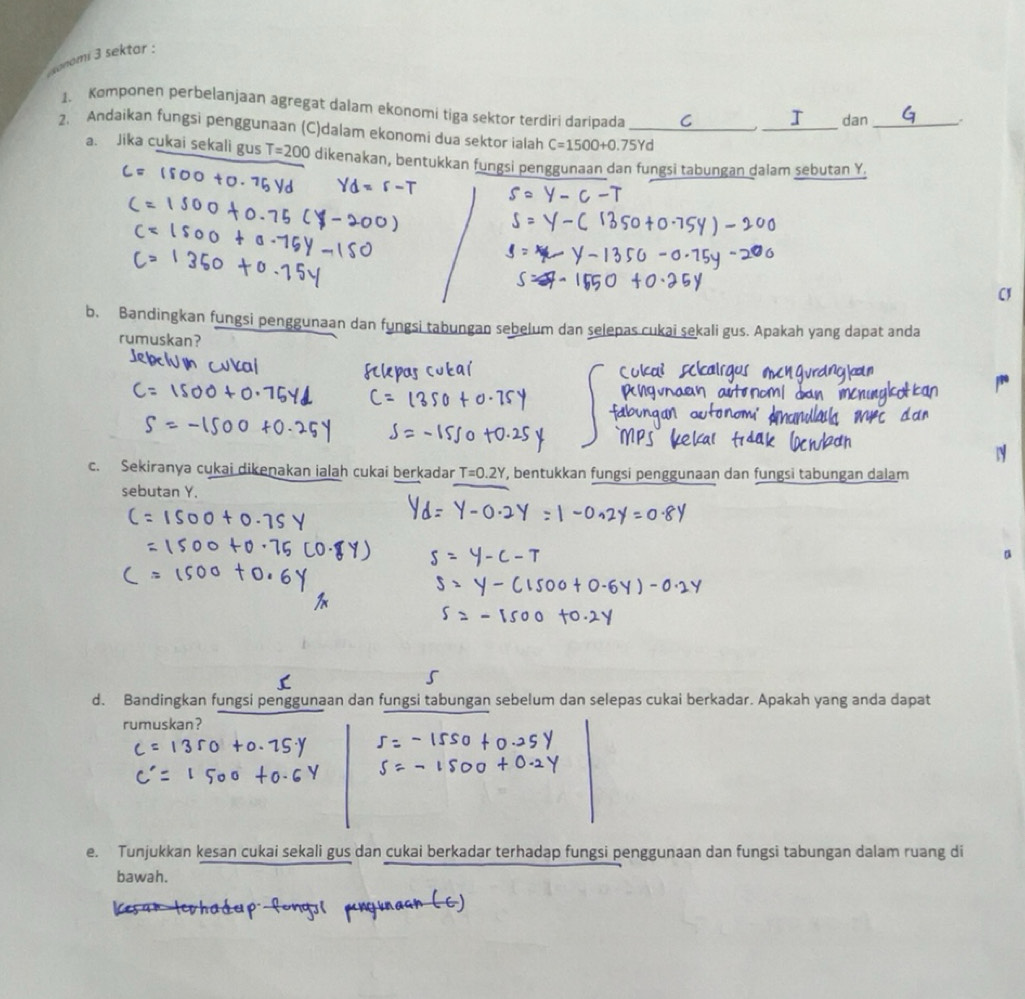 konomi 3 sektor :
1. Komponen perbelanjaan agregat dalam ekonomi tiga sektor terdiri daripada C, I dan G.
2. Andaikan fungsi penggunaan (C)dalam ekonomi dua sektor ialah C=1500+0.75Yd
a. Jika cukai sekali gus T=200 dikenakan, bentukkan fungsi penggunaan dan fungsi tabungan dalam sebutan Y.
C = 1500 + 0.75Yd Yd = S - T
C = 1500 + 0.75 (Y - 200)
C = 1500 + 0.75Y - 150
C = 1350 + 0.75Y
S = Y - C - T
S = Y - ( 1350 + 0.75Y) - 200
S = Y - 1350 - 0.75y - 200
S = - 1550 + 0.25Y
b. Bandingkan fungsi penggunaan dan fungsi tabungan sebelum dan selepas cukai sekali gus. Apakah yang dapat anda
rumuskan?
Sebelum cukai
C = 1500 + 0.75Yd
S = -1500 + 0.25Y
selepas cukai
C = 1350 + 0.75Y
S = -1550 + 0.25Y
cukai sekaligus mengurangkan
penggunaan autonomi dan meningkatkan
tabungan autonomi MPC dan
MPS kekal tidak berubah
c. Sekiranya cukai dikenakan ialah cukai berkadar T=0.2Y, bentukkan fungsi penggunaan dan fungsi tabungan dalam
sebutan Y.
C = 1500 + 0.75Y
= 1500 + 0.75 (0.8Y)
C = 1500 + 0.6Y
Yd = Y - 0.2Y = 1 - 0.2Y = 0.8Y
S = Y - C - T
S = Y - (1500 + 0.6Y) - 0.2Y
S = - 1500 + 0.2Y
S
d. Bandingkan fungsi penggunaan dan fungsi tabungan sebelum dan selepas cukai berkadar. Apakah yang anda dapat
rumuskan?
C = 1350 + 0.75Y
C' = 1500 + 0.6Y
S = - 1550 + 0.25Y
S = - 1500 + 0.2Y
e. Tunjukkan kesan cukai sekali gus dan cukai berkadar terhadap fungsi penggunaan dan fungsi tabungan dalam ruang di
bawah.
kesan terhadap fungsi pengunaan (C)